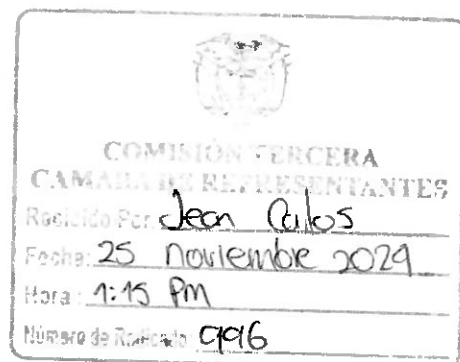 COMISIÓN TERCERA
CAMARA DE REPRESENTANTES
Recibido Por: Jean Carlos
Fecha: 25 noviembre 2024
Hora: 1:15 Pm
Número de Radicado: 996